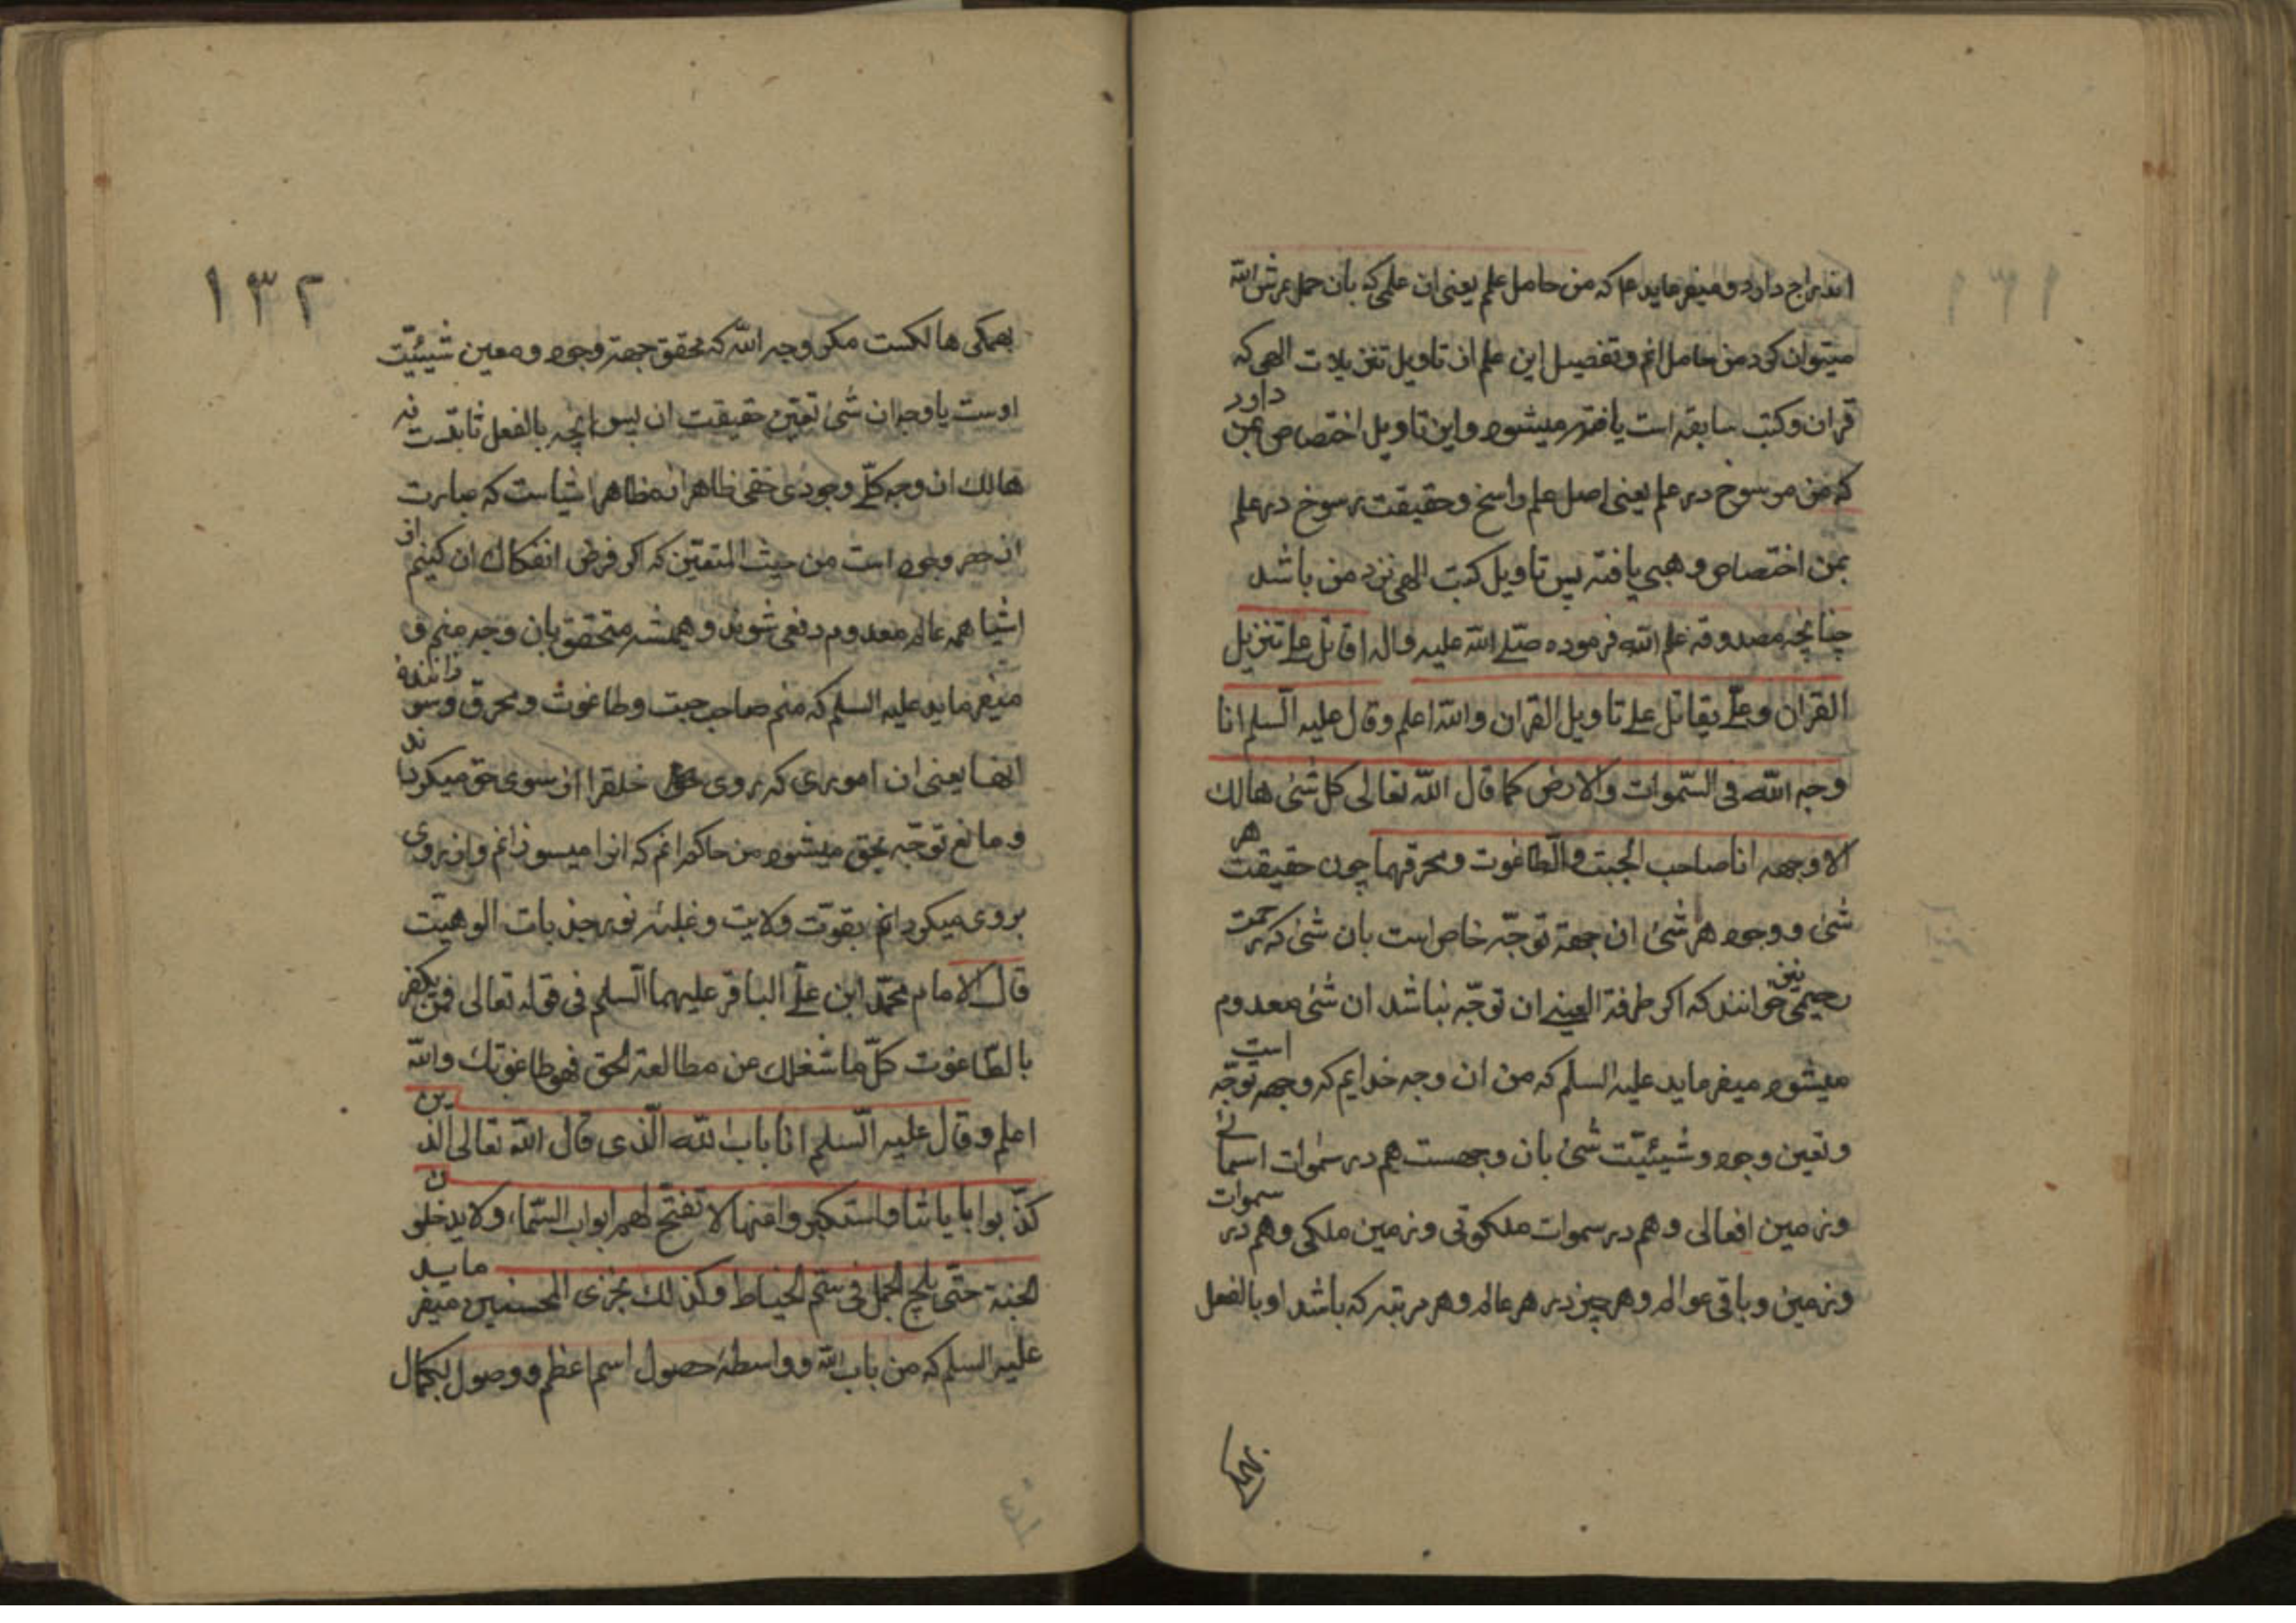 اندراج دارد و میفرماید ع‍ا که من حامل علم یعنی ان علمی که بان حمل عرش الله
میتوان کرد من حامل انم و تفصیل این علم از تاویل تنزیلات الهی که
قران و کتب سابقه است یافته میشود و این تاویل اختصاص بمن دارد
که من رسوخ در علم یعنی اصل علم راسخ و حقیقت رسوخ در علم
بمن اختصاص وهبی یافته پس تاویل کتب الهی نزد من باشد
چنانچه مصدوقه علم الله فرموده صلّے الله علیه واله اقاتل علے تنزیل
القران و علّے یقاتل علے تاویل القران والله اعلم وقال علیه السلم انا
وجه الله فی السّموات والارض کما قال الله تعالی کل شئ هالك
الا وجهه انا صاحب الجبت والطاغوت ومحرقهما چون حقیقت هر
شئ و وجود هر شئ ان جهة توجّه خاص است بان شئ که
رحیمی نیز خوانند که اکر طرفة العینے ان توجّه نباشد ان شئ معدوم
میشود میفرماید علیه السلم که من ان وجه خدایم که وجهه توجّه است
و تعین وجود و شیئیّت شئ بان وجهست هم در سموات اسمائے
و زمین افعالی و هم در سموات ملکوتی و زمین ملکی و هم در سموات
و زمین و باقی عوالم و هر چیز در هر عالم و هر مرتبه که باشد او بالفعل
۱۳۲
بهمکی هالکست مکر وجه الله که محقق جهة وجود و معین شیئیّت
اوست یا وجه ان شئ تعیّن حقیقت ان پس انچه بالفعل ثابتست نه
هالك ان وجه کلّے وجودی حقی ظاهر از مظاهر اشیاست که عبارت
از وجود است من حیث المتعیّن که اکر فرض انفکاك ان کنیم از
اشیا همه عالم معدوم دفعی شوند و همیشه متحقق بان وجه منم و
میفرماید علیه السلم که منم صاحب جبت و طاغوت و محرق و سوزاننده
انها یعنی ان اموری که روی خلقرا از سوی حق میکردانند
و مانع توجّه بحق میشود من حاکم انم که انرا میسوزانم و از روی
بروی میکردانم بقوّت ولایت و غلبۀ نور جذبات الوهیّت
قال الامام محمّد ابن علّے الباقر علیهما السلم فی قوله تعالی فمن یکفر
بالطّاغوت کلّ ما شغلك عن مطالعة الحق فهو طاغوتك والله
اعلم وقال علیه السّلم انا باب الله الّذی قال الله تعالی الذین
کذّبوا بایاتنا واستکبروا عنها لا تفتّح لهم ابواب السّماء ولا یدخلون
الجنة حتّی یلج الجمل فی سمّ الخیاط وکذلك نجزی المحسنین میفرماید
علیه السلم که من باب الله و واسطۀ حصول اسم اعظم و وصول بکمال